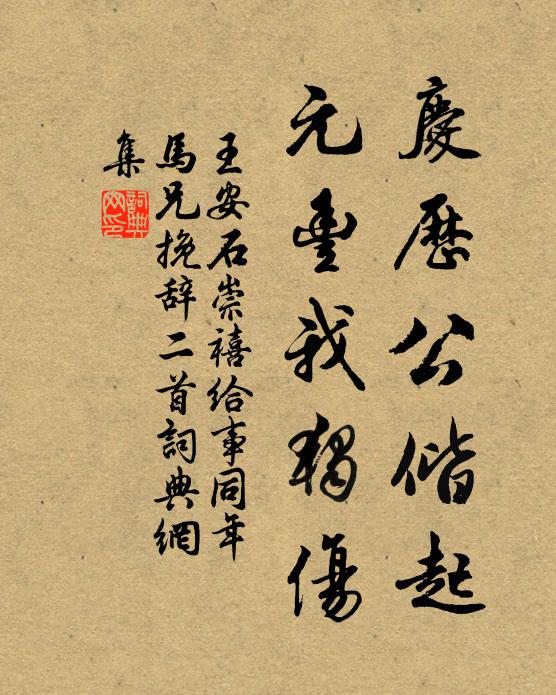 慶歷公偕起
元豐我獨傷
王安石崇禧給事同年
馬兄挽辞二首詞典網
集
詞典网印